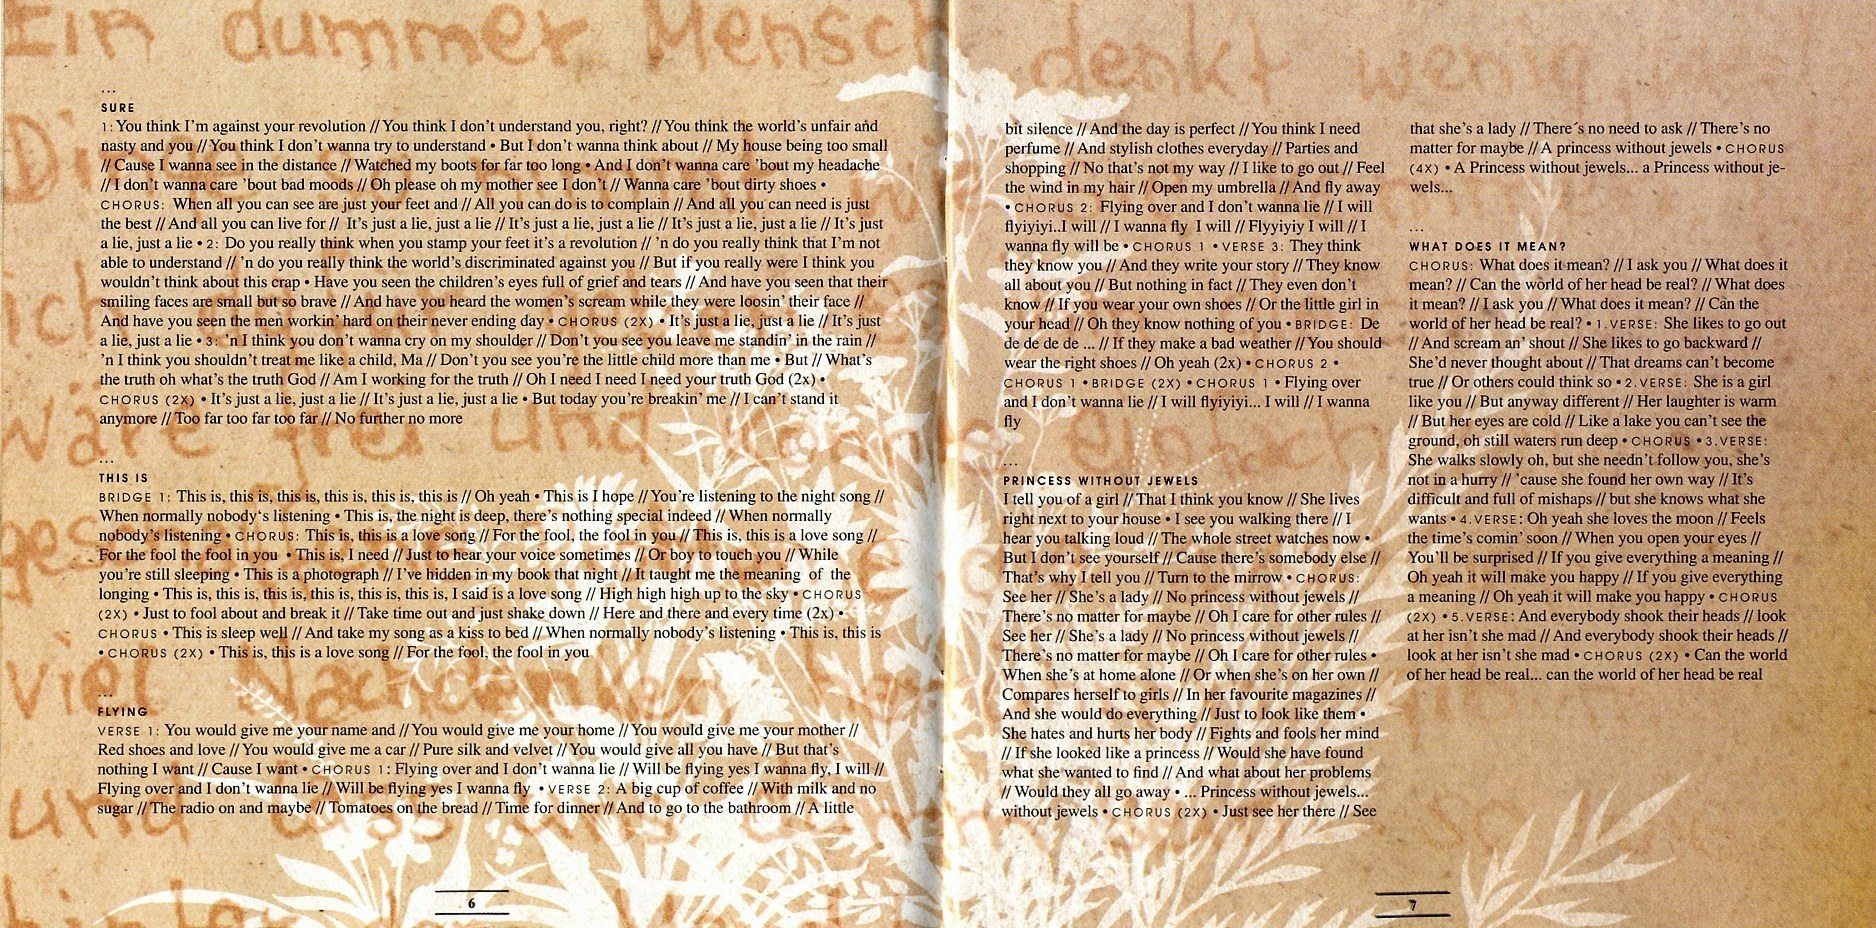 Ein dummer Mensch denkt wenig,
...
SURE
1: You think I'm against your revolution // You think I don't understand you, right? // You think the world's unfair and
nasty and you // You think I don't wanna try to understand • But I don't wanna think about // My house being too small
// Cause I wanna see in the distance // Watched my boots for far too long • And I don't wanna care 'bout my headache
// I don't wanna care 'bout bad moods // Oh please oh my mother see I don't // Wanna care 'bout dirty shoes •
CHORUS: When all you can see are just your feet and // All you can do is to complain // And all you can need is just
the best // And all you can live for // It's just a lie, just a lie // It's just a lie, just a lie // It's just a lie, just a lie // It's just
a lie, just a lie • 2: Do you really think when you stamp your feet it's a revolution // 'n do you really think that I'm not
able to understand // 'n do you really think the world's discriminated against you // But if you really were I think you
wouldn't think about this crap • Have you seen the children's eyes full of grief and tears // And have you seen that their
smiling faces are small but so brave // And have you heard the women's scream while they were loosin' their face //
And have you seen the men workin' hard on their never ending day • CHORUS (2X) • It's just a lie, just a lie // It's just
a lie, just a lie • 3: 'n I think you don't wanna cry on my shoulder // Don't you see you leave me standin' in the rain //
'n I think you shouldn't treat me like a child, Ma // Don't you see you're the little child more than me • But // What's
the truth oh what's the truth God // Am I working for the truth // Oh I need I need I need your truth God (2x) •
CHORUS (2X) • It's just a lie, just a lie // It's just a lie, just a lie • But today you're breakin' me // I can't stand it
anymore // Too far too far too far // No further no more
...
THIS IS
BRIDGE 1: This is, this is, this is, this is, this is, this is // Oh yeah • This is I hope // You're listening to the night song //
When normally nobody's listening • This is, the night is deep, there's nothing special indeed // When normally
nobody's listening • CHORUS: This is, this is a love song // For the fool, the fool in you // This is, this is a love song //
For the fool the fool in you • This is, I need // Just to hear your voice sometimes // Or boy to touch you // While
you're still sleeping • This is a photograph // I've hidden in my book that night // It taught me the meaning of the
longing • This is, this is, this is, this is, this is, this is, I said is a love song // High high high up to the sky • CHORUS
(2X) • Just to fool about and break it // Take time out and just shake down // Here and there and every time (2x) •
CHORUS • This is sleep well // And take my song as a kiss to bed // When normally nobody's listening • This is, this is
• CHORUS (2X) • This is, this is a love song // For the fool, the fool in you
...
FLYING
VERSE 1: You would give me your name and // You would give me your home // You would give me your mother //
Red shoes and love // You would give me a car // Pure silk and velvet // You would give all you have // But that's
nothing I want // Cause I want • CHORUS 1: Flying over and I don't wanna lie // Will be flying yes I wanna fly, I will //
Flying over and I don't wanna lie // Will be flying yes I wanna fly • VERSE 2: A big cup of coffee // With milk and no
sugar // The radio on and maybe // Tomatoes on the bread // Time for dinner // And to go to the bathroom // A little
6
bit silence // And the day is perfect // You think I need
perfume // And stylish clothes everyday // Parties and
shopping // No that's not my way // I like to go out // Feel
the wind in my hair // Open my umbrella // And fly away
• CHORUS 2: Flying over and I don't wanna lie // I will
flyiyiyi..I will // I wanna fly I will // Flyyiyiy I will // I
wanna fly will be • CHORUS 1 • VERSE 3: They think
they know you // And they write your story // They know
all about you // But nothing in fact // They even don't
know // If you wear your own shoes // Or the little girl in
your head // Oh they know nothing of you • BRIDGE: De
de de de de ... // If they make a bad weather // You should
wear the right shoes // Oh yeah (2x) • CHORUS 2 •
CHORUS 1 • BRIDGE (2X) • CHORUS 1 • Flying over
and I don't wanna lie // I will flyiyiyi... I will // I wanna
fly
...
PRINCESS WITHOUT JEWELS
I tell you of a girl // That I think you know // She lives
right next to your house • I see you walking there // I
hear you talking loud // The whole street watches now •
But I don't see yourself // Cause there's somebody else //
That's why I tell you // Turn to the mirrow • CHORUS:
See her // She's a lady // No princess without jewels //
There's no matter for maybe // Oh I care for other rules //
See her // She's a lady // No princess without jewels //
There's no matter for maybe // Oh I care for other rules •
When she's at home alone // Or when she's on her own //
Compares herself to girls // In her favourite magazines //
And she would do everything // Just to look like them •
She hates and hurts her body // Fights and fools her mind
// If she looked like a princess // Would she have found
what she wanted to find // And what about her problems
// Would they all go away • ... Princess without jewels...
without jewels • CHORUS (2X) • Just see her there // See
that she's a lady // There´s no need to ask // There's no
matter for maybe // A princess without jewels • CHORUS
(4X) • A Princess without jewels... a Princess without je-
wels...
...
WHAT DOES IT MEAN?
CHORUS: What does it mean? // I ask you // What does it
mean? // Can the world of her head be real? // What does
it mean? // I ask you // What does it mean? // Can the
world of her head be real? • 1.VERSE: She likes to go out
// And scream an' shout // She likes to go backward //
She'd never thought about // That dreams can't become
true // Or others could think so • 2.VERSE: She is a girl
like you // But anyway different // Her laughter is warm
// But her eyes are cold // Like a lake you can't see the
ground, oh still waters run deep • CHORUS • 3.VERSE:
She walks slowly oh, but she needn't follow you, she's
not in a hurry // 'cause she found her own way // It's
difficult and full of mishaps // but she knows what she
wants • 4.VERSE: Oh yeah she loves the moon // Feels
the time's comin' soon // When you open your eyes //
You'll be surprised // If you give everything a meaning //
Oh yeah it will make you happy // If you give everything
a meaning // Oh yeah it will make you happy • CHORUS
(2X) • 5.VERSE: And everybody shook their heads // look
at her isn't she mad // And everybody shook their heads //
look at her isn't she mad • CHORUS (2X) • Can the world
of her head be real... can the world of her head be real
7